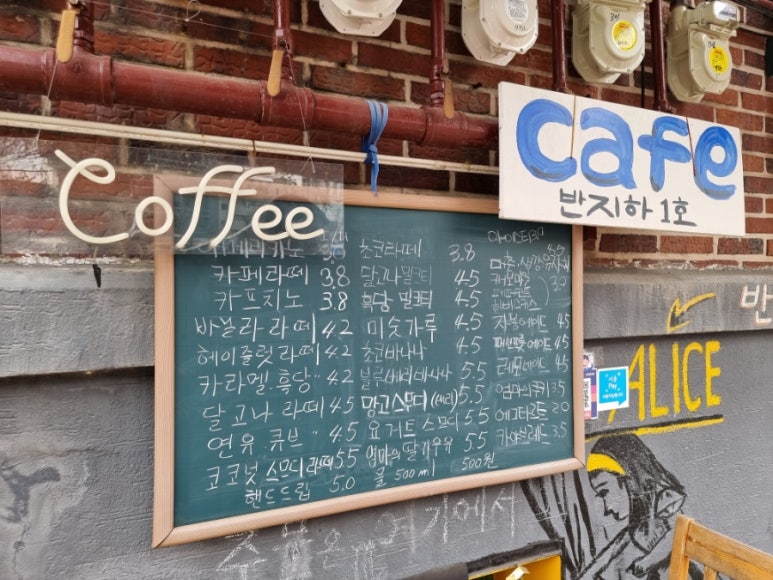 cafe
반지하 1호
Coffee
카페라떼 3.8
카프치노 3.8
바닐라 라떼 4.2
헤이즐럿 라떼 4.2
카라멜.흑당 4.2
달고나 라떼 4.5
연유 큐브 4.5
코코넛 스므디 라떼 5.5
핸드드립 5.0
초코라떼 3.8
달고나 밀크티 4.5
흑당 밀크티 4.5
미숫가루 4.5
초코바나나 4.5
블루베리바나나 5.5
망고스무디 5.5
요거트 스므디 5.5
엄마의 딸기우유 5.5
물 500ml 500원
페퍼민트
히비스커스
자몽에이드 4.5
레모네이드 4.5
엄마의쿠키 3.5
에그타르트 2.0
3.5
반
ALICE
여기에서